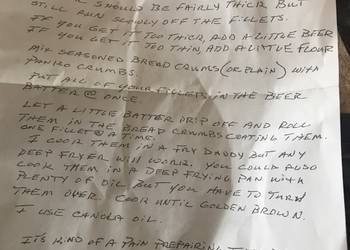 SHOULD BE FAIRLY THICK BUT
STILL RUN SLOWLY OFF THE FILLETS.
IF YOU GET IT TOO THICK, ADD A LITTLE BEER
IF YOU GET IT TOO THIN, ADD A LITTLE FLOUR
MIX SEASONED BREAD CRUMBS (OR PLAIN) WITH
PANKO CRUMBS.
PUT ALL OF YOUR FILLETS IN THE BEER
BATTER @ ONCE.
LET A LITTLE BATTER DRIP OFF AND ROLL
THEM IN THE BREAD CRUMBS COATING THEM.
ONE FILLET @ A TIME.
I COOK THEM IN A FRY DADDY BUT ANY
DEEP FRYER WILL WORK. YOU COULD ALSO
COOK THEM IN A DEEP FRYING PAN WITH
PLENTY OF OIL BUT YOU HAVE TO TURN
THEM OVER. COOK UNTIL GOLDEN BROWN.
I USE CANOLA OIL.
IT'S KIND OF A PAIN PREPARING